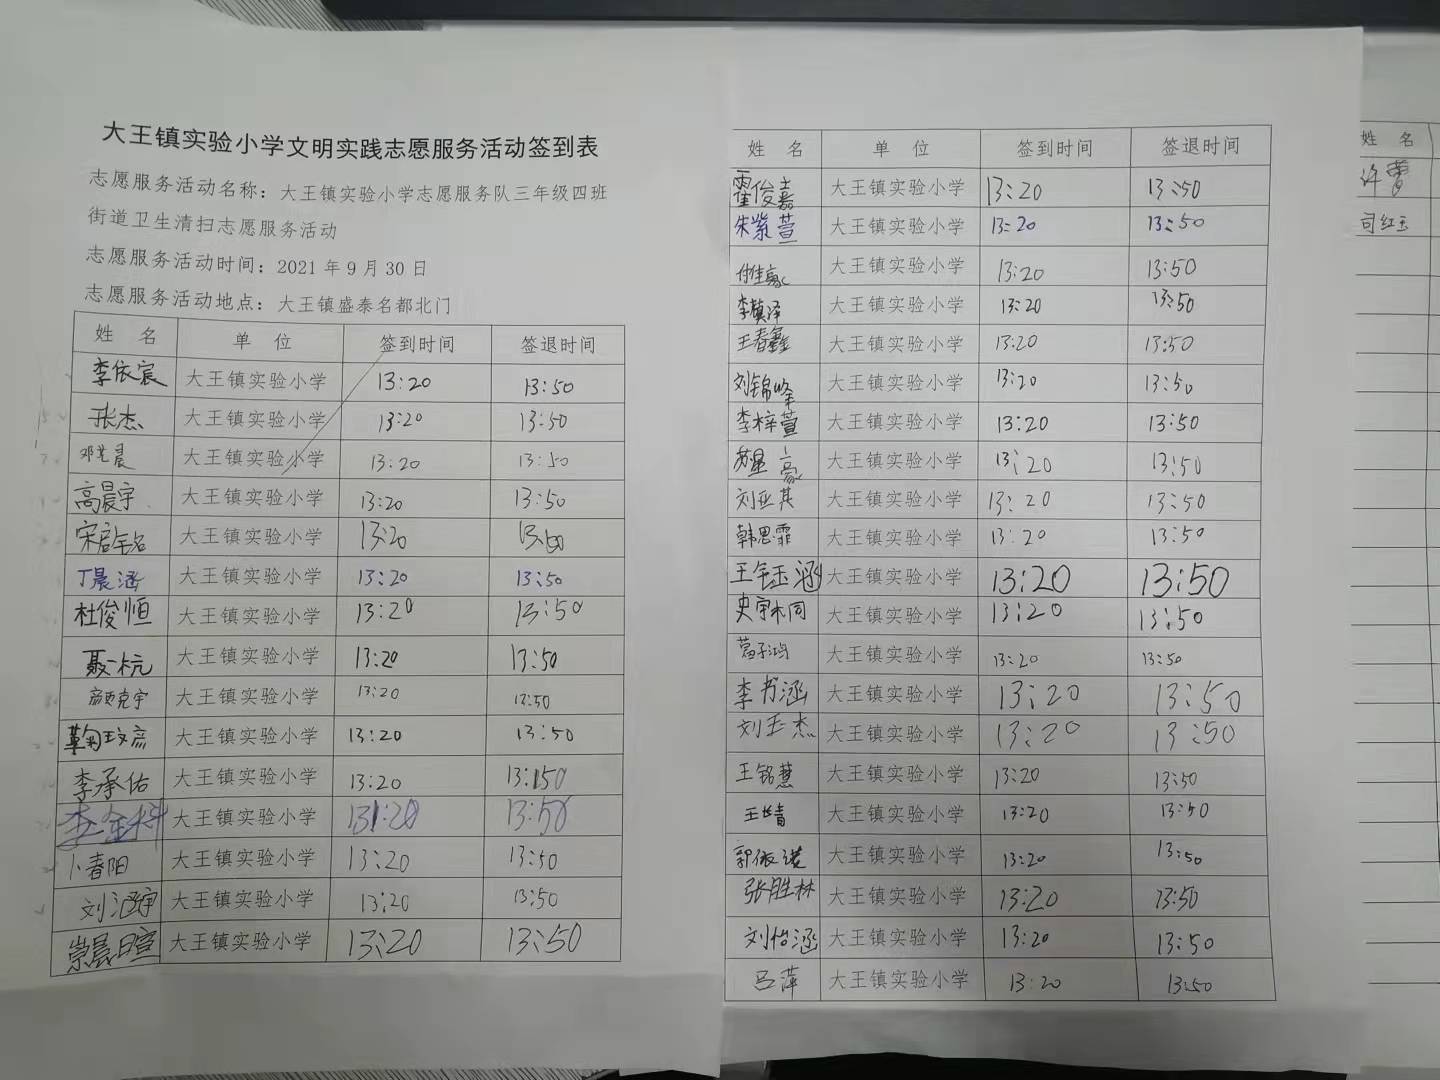 大王镇实验小学文明实践志愿服务活动签到表
志愿服务活动名称：大王镇实验小学志愿服务队三年级四班
街道卫生清扫志愿服务活动
志愿服务活动时间：2021年9月30日
志愿服务活动地点：大王镇盛泰名都北门
姓 名 单 位 签到时间 签退时间
李依宸 大王镇实验小学 13:20 13:50
张杰 大王镇实验小学 13:20 13:50
邓光晨 大王镇实验小学 13:20 13:50
高晨宇 大王镇实验小学 13:20 13:50
宋启铭 大王镇实验小学 13:20 13:50
丁晨涵 大王镇实验小学 13:20 13:50
杜俊恒 大王镇实验小学 13:20 13:50
聂一杭 大王镇实验小学 13:20 13:50
克宇 大王镇实验小学 13:20 13:50
鞠玟彦 大王镇实验小学 13:20 13:50
李承佑 大王镇实验小学 13:20 13:50
李金科 大王镇实验小学 13:20 13:50
卜春阳 大王镇实验小学 13:20 13:50
刘涵宇 大王镇实验小学 13:20 13:50
崇晨暄 大王镇实验小学 13:20 13:50
姓 名 单 位 签到时间 签退时间
霍俊嘉 大王镇实验小学 13:20 13:50
朱紫萱 大王镇实验小学 13:20 13:50
付佳豪 大王镇实验小学 13:20 13:50
李慎泽 大王镇实验小学 13:20 13:50
王春鑫 大王镇实验小学 13:20 13:50
刘锦峰 大王镇实验小学 13:20 13:50
李梓萱 大王镇实验小学 13:20 13:50
苏星豪 大王镇实验小学 13:20 13:50
刘亚其 大王镇实验小学 13:20 13:50
韩思霏 大王镇实验小学 13:20 13:50
王钰涵 大王镇实验小学 13:20 13:50
史宇桐 大王镇实验小学 13:20 13:50
葛子鸿 大王镇实验小学 13:20 13:50
李书涵 大王镇实验小学 13:20 13:50
刘玉杰 大王镇实验小学 13:20 13:50
王铭慧 大王镇实验小学 13:20 13:50
王长青 大王镇实验小学 13:20 13:50
郭依诺 大王镇实验小学 13:20 13:50
张胜林 大王镇实验小学 13:20 13:50
刘怡涵 大王镇实验小学 13:20 13:50
吕萍 大王镇实验小学 13:20 13:50
姓 名
许蕾
司红玉